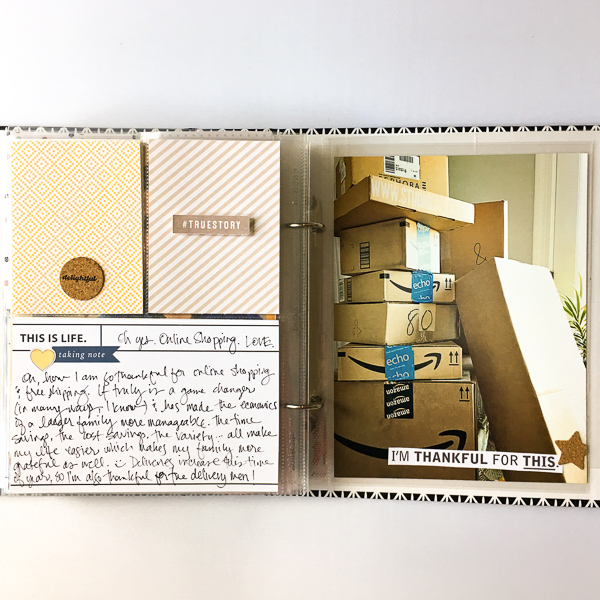 delightful
#TRUESTORY
THIS IS LIFE.
Oh yes. Online Shopping. LOVE.
taking note
Oh, how I am so thankful for online shopping
& free shipping. It truly is a game changer
(in many ways, I know) & has made the economics
of a larger family more manageable. The time
savings, the cost savings, the variety... all make
my life easier which makes my family more
grateful as well. Deliveries increase this time
of year, so I'm also thankful for the delivery men!
SEPHORA
&
echo
80
echo
amazon
amazon
I'M THANKFUL FOR THIS.